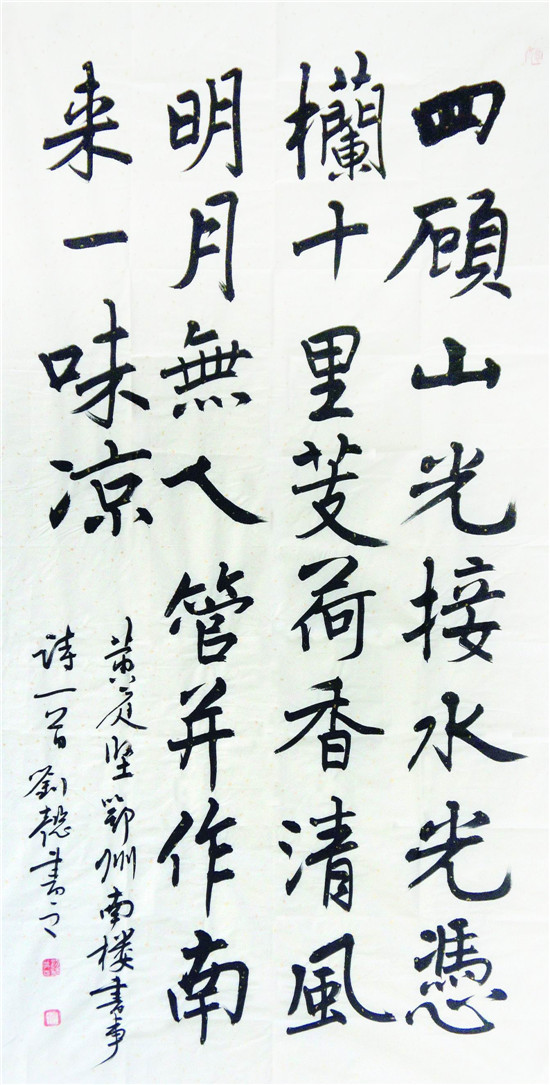 四顾山光接水光憑
欄十里芰荷香清風
明月無人管并作南
来一味凉
黄庭坚鄂州南楼書事
诗一首劉懿書之